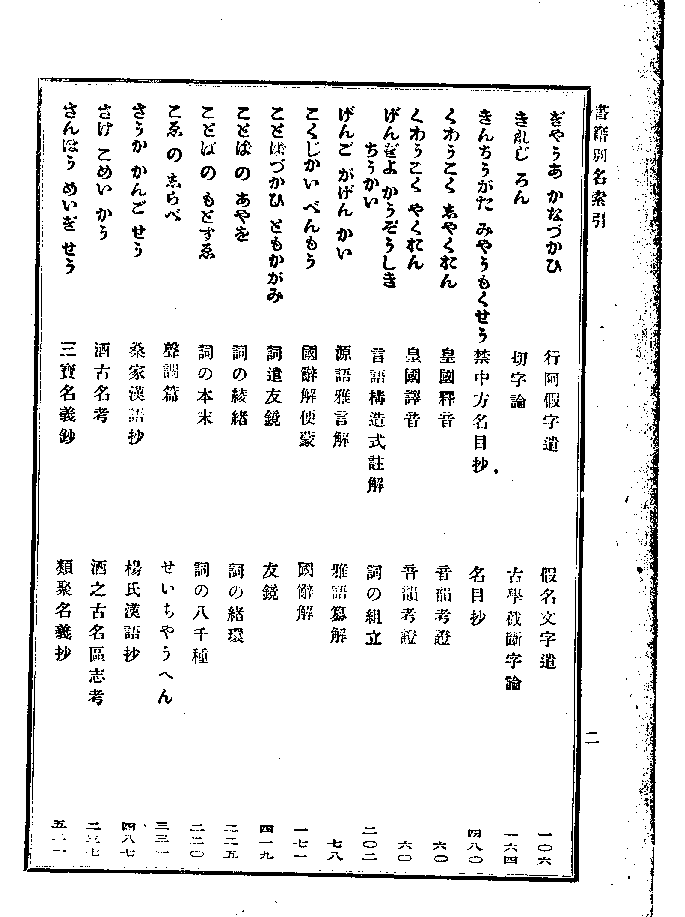 書籍別名索引
二
ぎやうあ かなづかひ 行阿假字遣 假名文字遣 一〇六
きれじ ろん 切字論 古學截斷字論 一六四
きんちうがた みやうもくせう 禁中方名目抄 名目抄 四八〇
くわうこく しやくおん 皇國釋音 音韻考證 六〇
くわうこく やくおん 皇國譯音 音韻考證 六〇
げんぎよ かうぞうしき ちうかい 言語構造式註解 詞の組立 二〇二
げんご がげん かい 源語雅言解 雅語纂解 七八
こくじかい べんもう 國辭解便蒙 國辭解 一七一
ことばづかひ ともかがみ 詞遣友鏡 友鏡 四一九
ことばの あやを 詞の綾緒 詞の緒環 二二五
ことばの もとすゑ 詞の本末 詞の八千種 二二〇
こゑ の しらべ 聲調篇 せいちやうへん 三三一
さうか かんご せう 桑家漢語抄 楊氏漢語抄 四八七
さけ こめい かう 酒古名考 酒之古名區志考
さんぼう めいぎ せう 三寶名義鈔 類聚名義抄